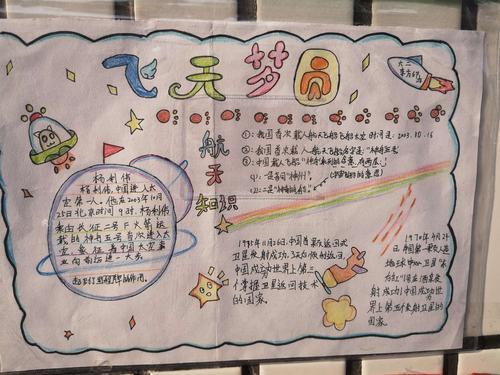 飞天梦圆
大二
东方
航天知识
杨利伟
杨利伟,中国进入太
空第一人,他在2003年10月
25日北京时间9时,杨利伟
乘由长征二号F火箭运
载的神舟五号首次进入太
空,象征着中国太空事
业向前迈进一大步,
起到了里程碑的作用。
①:我国首次载人航天飞船飞船太空时间是:2003.10.16
②:我国首次载人航天飞船名字是:"神舟五号
③:中国载人飞船"神舟"系列的含意有两层:
(1):一是寓同"神州",
(2):二是"神奇的舟"。
1985年11月26日,中国首颗返回式
卫星发射成功,3天后恢射返回。
中国成功世界上第三
个掌握卫星返回技术
的国家。
1970年4月24
日中国第一颗人造
地球 卫星"东
方红"1号在酒泉发
射成功1中国成为世
界上第五个发射卫星的
国家。